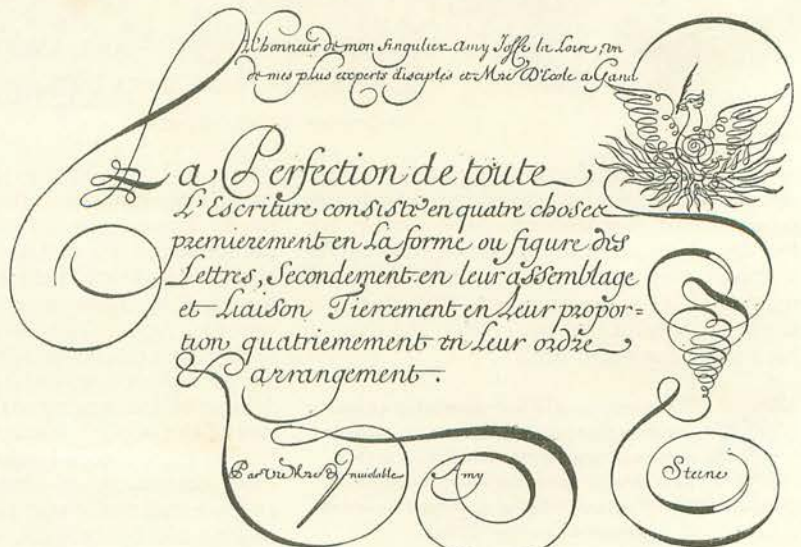 L'honneur de mon singulier Amy Josse la Loire, un
de mes plus experts disciples et Mre D'Ecole a Gand
La Perfection de toute
L'Escriture consiste en quatre choses
premierement en La forme ou figure des
Lettres, Secondement en leur assemblage
et Liaison Tiercement en Leur propor=
tion quatriemement en Leur ordre
arrangement.
Par Vre Mre & Inviolable Amy Steene